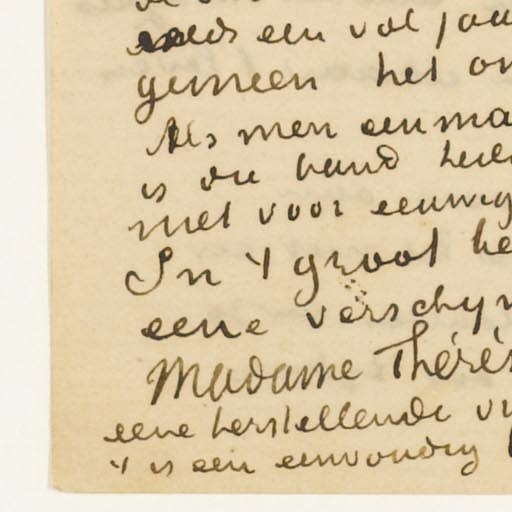 reeds een vol jaa
gemeen het on
Als men eenma
is die band hee
niet voor eeuwig
In 't groot he
eene verschyn
Madame Thérès
eene herstellende vr
't is een eenvoudig